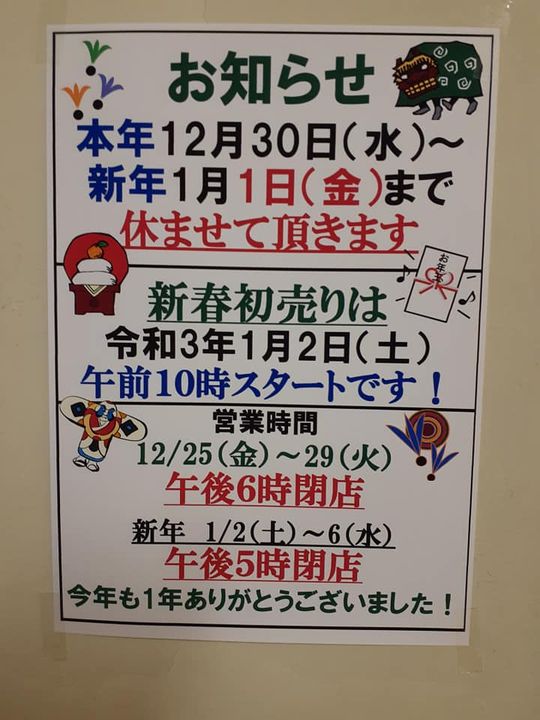 お知らせ
本年12月30日(水)～
新年1月1日(金)まで
休ませて頂きます
お年玉
新春初売りは
令和3年1月2日(土)
午前10時スタートです！
営業時間
12/25(金)～29(火)
午後6時閉店
新年 1/2(土)～6(水)
午後5時閉店
今年も1年ありがとうございました！